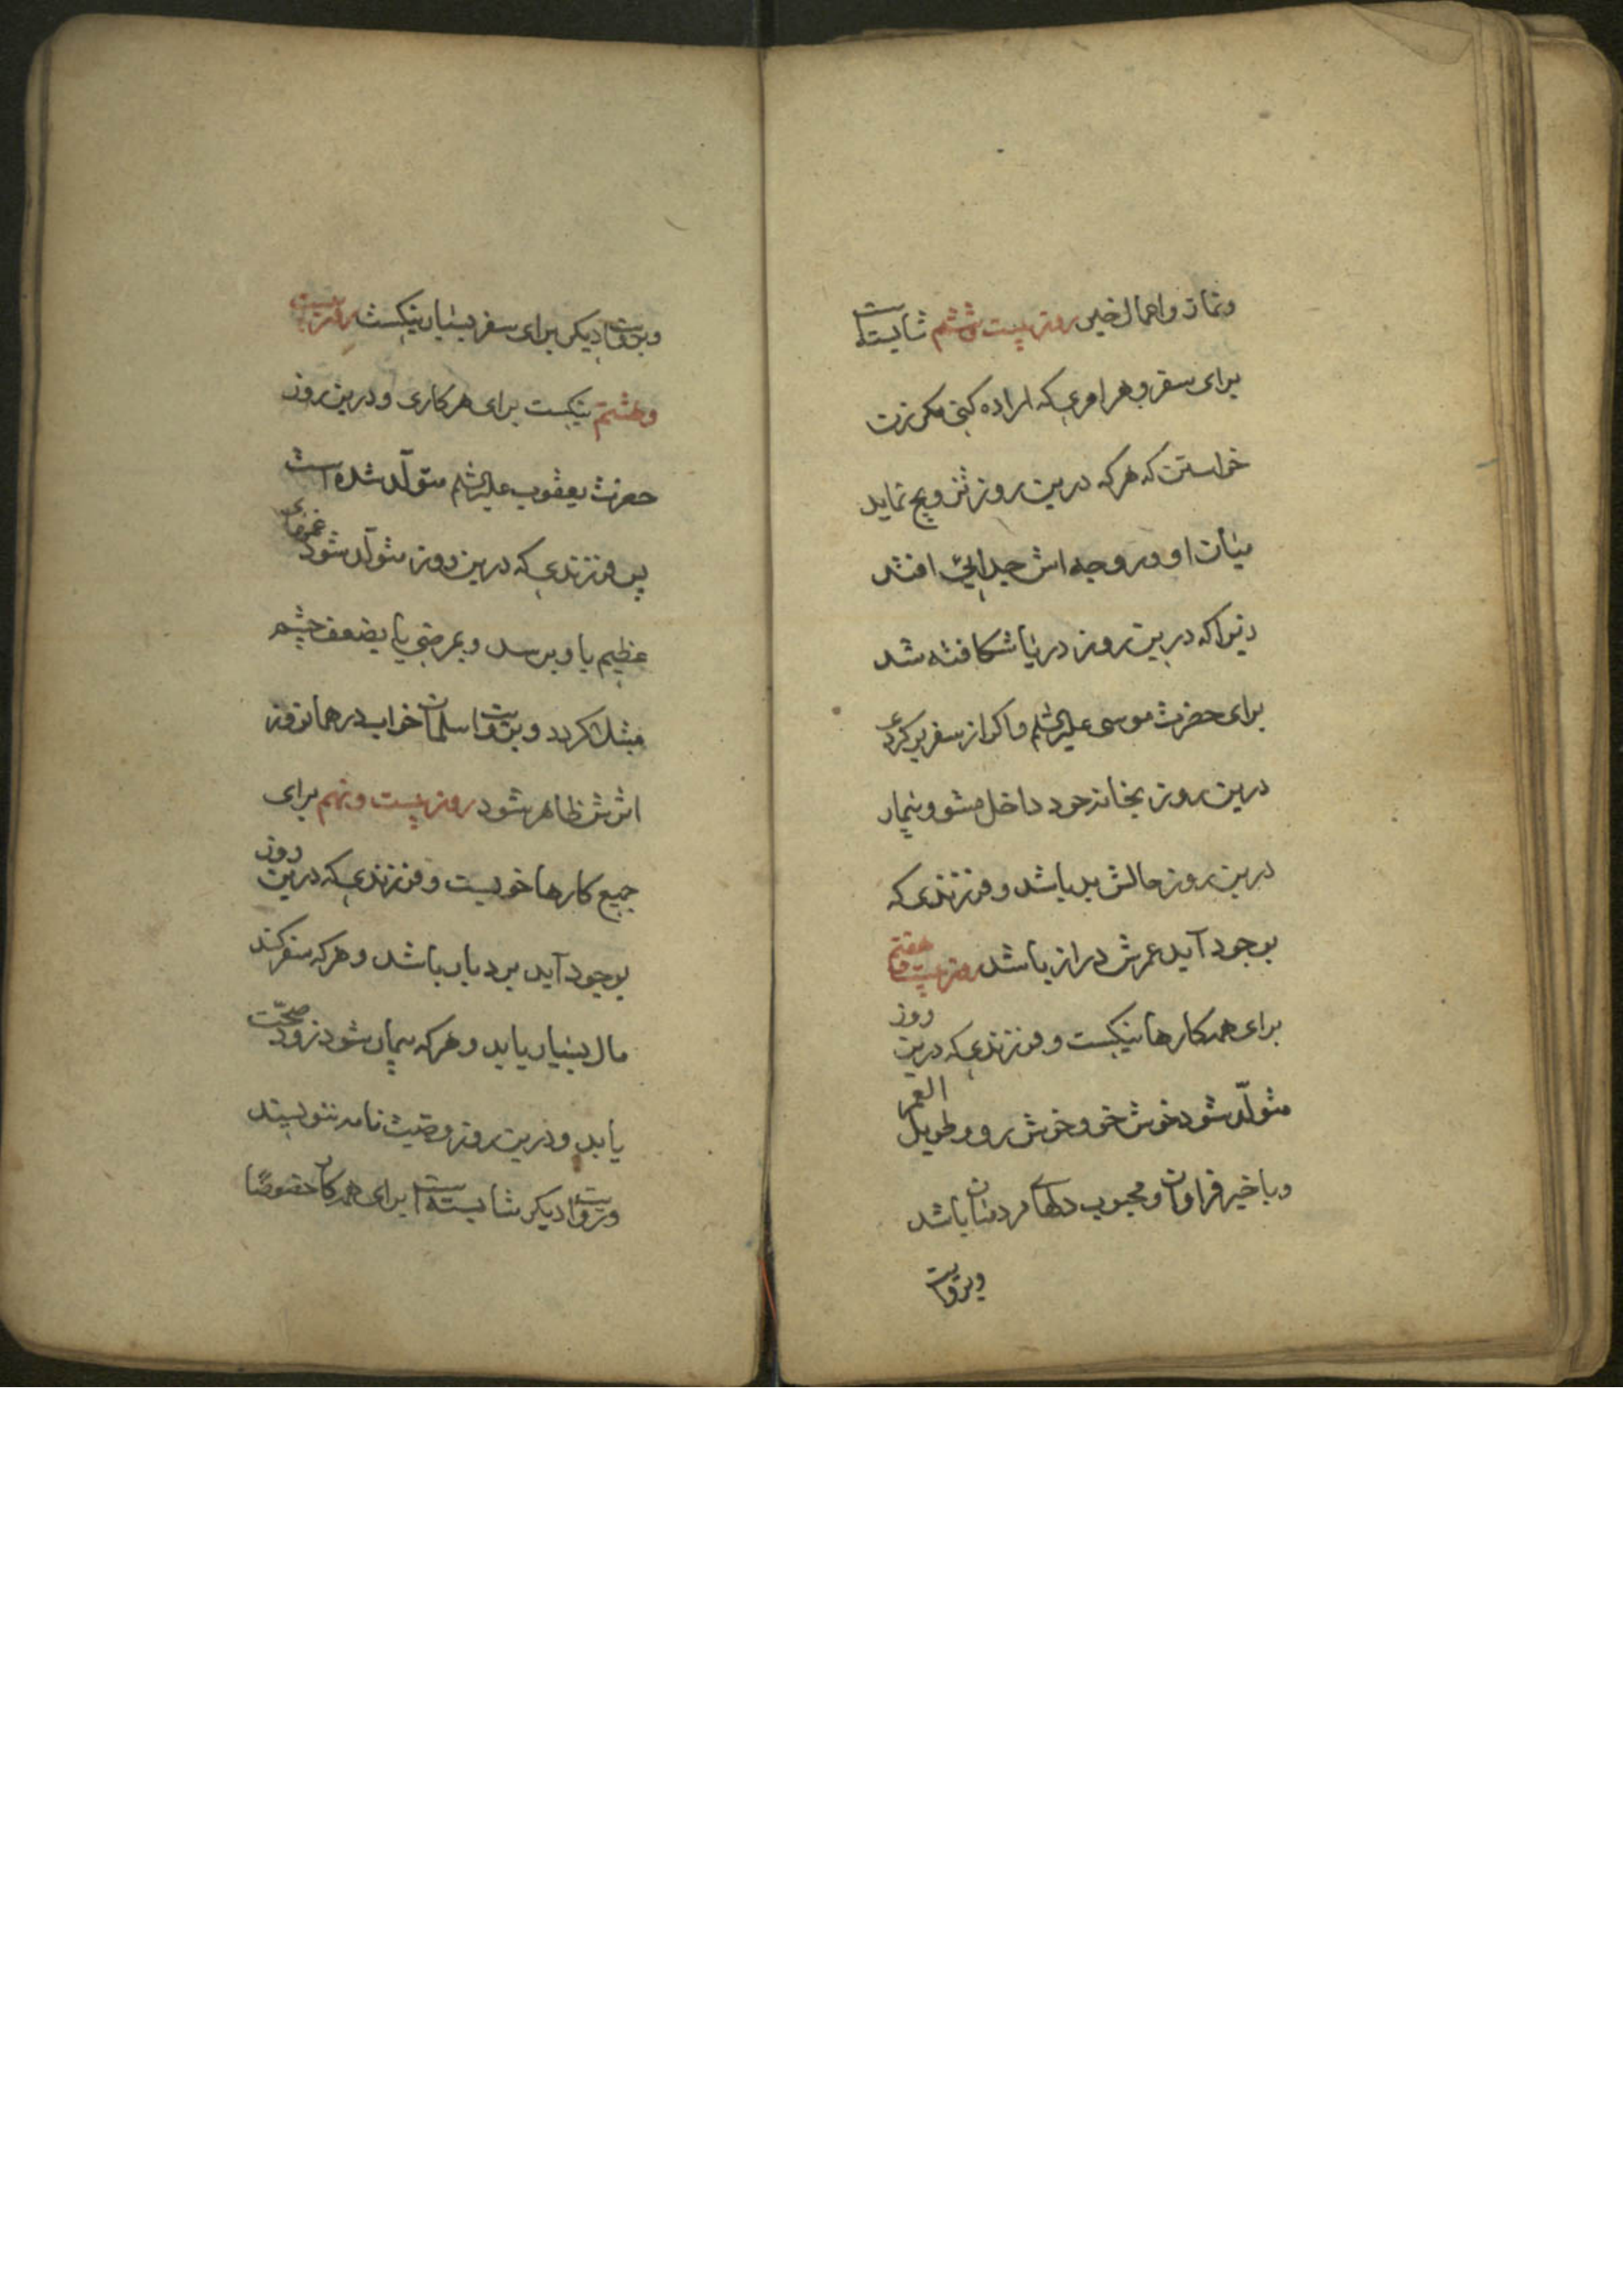 و نماز و اعمال خیر روز بیست و ششم شایسته است
برای سفر و هر امری که اراده کنی مگر زن
خواستن که هر که درین روز تزویج نماید
میان او و زوجه اش جدایی افتد
زیرا که درین روز دریا شکافته شد
برای حضرت موسی علیه السلم و اگر از سفر برگردی
درین روز بخانه خود داخل مشو و بیمار
درین روز حالش بد باشد و فرزندی که
بوجود آید عمرش دراز باشد روز بیست و هفتم
برای همه کارها نیکست و فرزندی که درین روز
متولّد شود خوش خو و خوش رو و طویل العمر
و با خیر فراوان و محبوب دلهای مردمان باشد
و بروایت
و بروایت دیگر برای سفر بسیار نیکست روز بیست
و هشتم نیکست برای هر کاری و درین روز
حضرت یعقوب علیه السلم متولّد شده است
پس فرزندی که درین روز متولّد شود غمهای
عظیم باو برسد و بمرضی یا بضعف چشم
مبتلا گردد و بروایت سلمان خواب در همان روز
اثرش ظاهر شود روز بیست و نهم برای
جمیع کارها خوبست و فرزندی که درین روز
بوجود آید بردبار باشد و هر که سفر کند
مال بسیار یابد و هر که بیمار شود زود صحّت
یابد و درین روز وصیت نامه ننویسند
و بروایت دیگر شایسته است برای هر کار خصوصًا